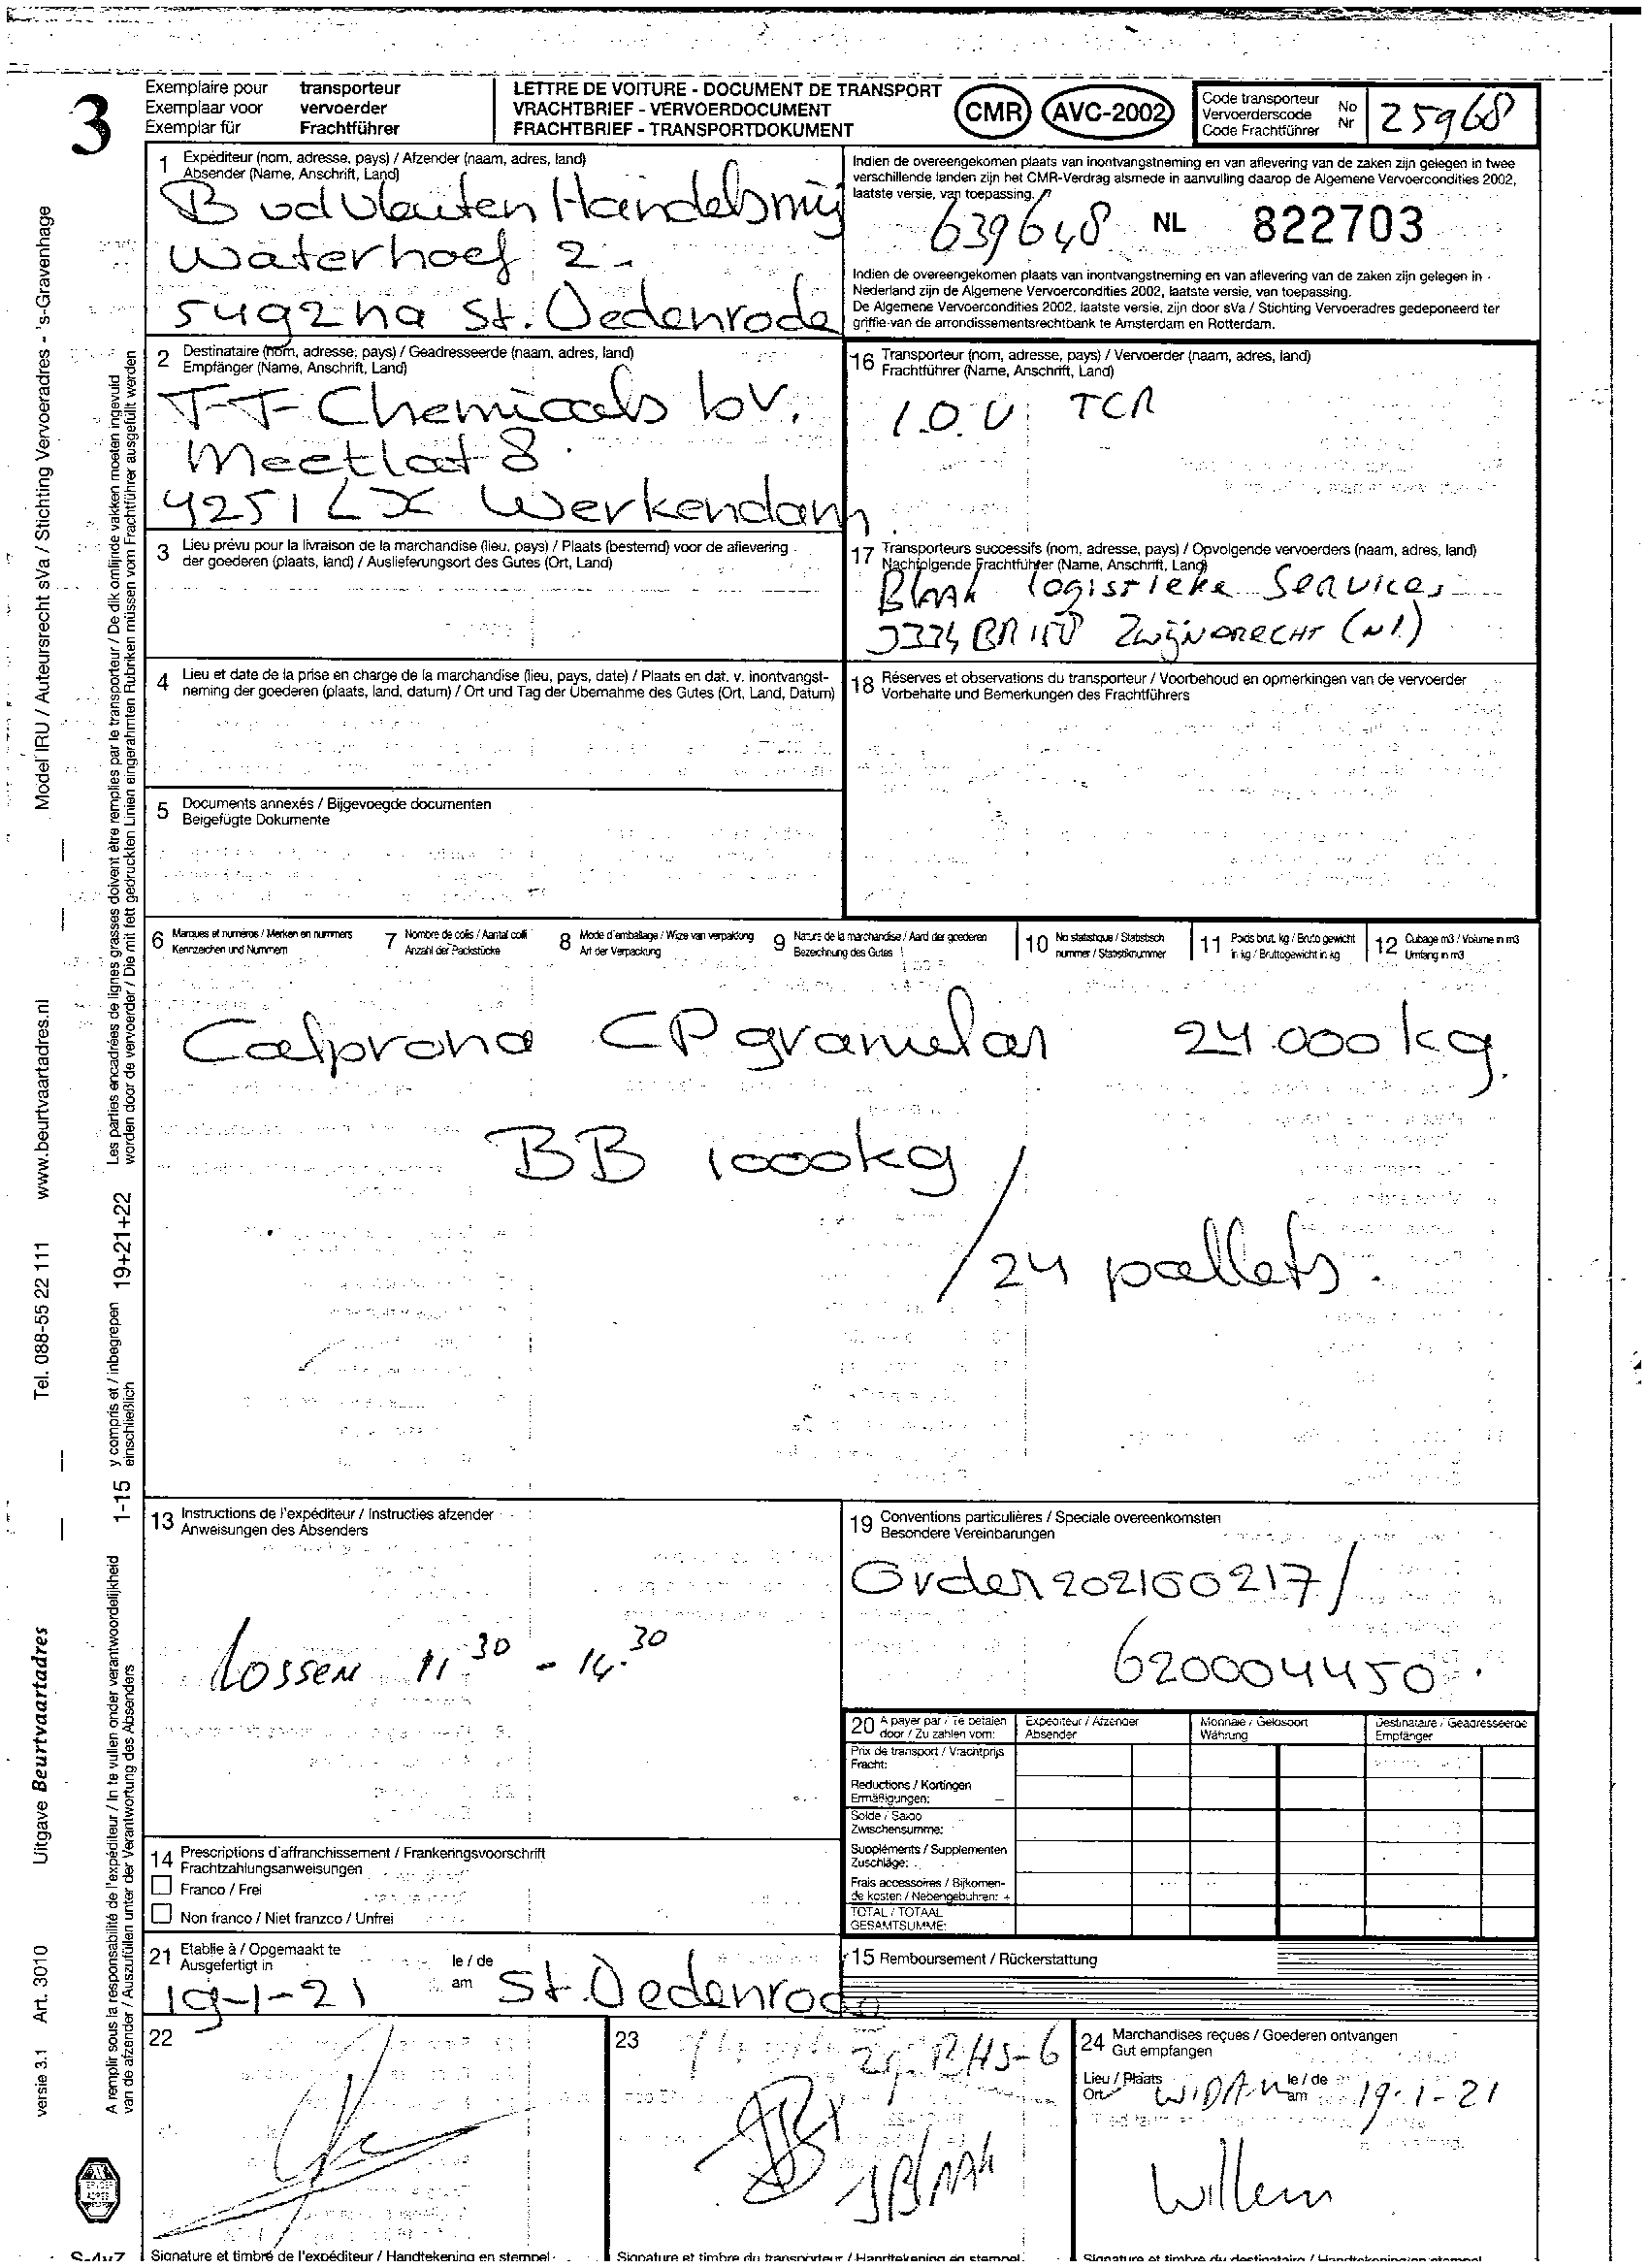 3
Exemplaire pour transporteur
Exemplaar voor vervoerder
Exemplar für Frachtführer
LETTRE DE VOITURE - DOCUMENT DE TRANSPORT
VRACHTBRIEF - VERVOERDOCUMENT
FRACHTBRIEF - TRANSPORTDOKUMENT
CMR AVC-2002
Code transporteur
Vervoerderscode
Code Frachtführer
No
Nr
25968
1 Expéditeur (nom, adresse, pays) / Afzender (naam, adres, land)
Absender (Name, Anschrift, Land)
B vd Vleuten Handelsmij
Waterhoef 2
5492 na St. Oedenrode
Indien de overeengekomen plaats van inontvangstneming en van aflevering van de zaken zijn gelegen in twee
verschillende landen zijn het CMR-Verdrag alsmede in aanvulling daarop de Algemene Vervoercondities 2002,
laatste versie, van toepassing.
639648 NL 822703
Indien de overeengekomen plaats van inontvangstneming en van aflevering van de zaken zijn gelegen in
Nederland zijn de Algemene Vervoercondities 2002, laatste versie, van toepassing.
De Algemene Vervoercondities 2002, laatste versie, zijn door sVa / Stichting Vervoeradres gedeponeerd ter
griffie van de arrondissementsrechtbank te Amsterdam en Rotterdam.
2 Destinataire (nom, adresse, pays) / Geadresseerde (naam, adres, land)
Empfänger (Name, Anschrift, Land)
T-T-Chemicals bv.
Meetlat 8
4251 LX Werkendam
16 Transporteur (nom, adresse, pays) / Vervoerder (naam, adres, land)
Frachtführer (Name, Anschrift, Land)
I.O.V. TCR
3 Lieu prévu pour la livraison de la marchandise (lieu, pays) / Plaats (bestemd) voor de aflevering
der goederen (plaats, land) / Auslieferungsort des Gutes (Ort, Land)
17 Transporteurs successifs (nom, adresse, pays) / Opvolgende vervoerders (naam, adres, land)
Nachfolgende Frachtführer (Name, Anschrift, Land)
Blaak logistieke Services
Zwijndrecht (NL)
4 Lieu et date de la prise en charge de la marchandise (lieu, pays, date) / Plaats en dat. v. inontvangst-
neming der goederen (plaats, land, datum) / Ort und Tag der Übernahme des Gutes (Ort, Land, Datum)
18 Réserves et observations du transporteur / Voorbehoud en opmerkingen van de vervoerder
Vorbehalte und Bemerkungen des Frachtführers
5 Documents annexés / Bijgevoegde documenten
Beigefügte Dokumente
6 Marques et numéros / Merken en nummers
Kennzeichen und Nummern
7 Nombre de colis / Aantal colli
Anzahl der Packstücke
8 Mode d'emballage / Wijze van verpakking
Art der Verpackung
9 Nature de la marchandise / Aard der goederen
Bezeichnung des Gutes
10 No statistique / Statistisch
nummer / Statistiknummer
11 Poids brut, kg / Bruto gewicht
in kg / Bruttogewicht in kg
12 Cubage m3 / Volume in m3
Umfang in m3
Calprona CP granular 24.000 kg.
BB 1000kg
/ 24 pallets.
13 Instructions de l'expéditeur / Instructies afzender
Anweisungen des Absenders
Lossen 11.30 - 14.30
19 Conventions particulières / Speciale overeenkomsten
Besondere Vereinbarungen
Order 202100217 /
620004450.
20 A payer par / Te betalen
door / Zu zahlen vom:
Expéditeur / Afzender
Absender
Monnaie / Geldsoort
Währung
Destinataire / Geadresseerde
Empfänger
Prix de transport / Vrachtprijs
Fracht:
Reductions / Kortingen
Ermäßigungen: –
Solde / Saldo
Zwischensumme:
Suppléments / Supplementen
Zuschläge:
Frais accessoires / Bijkomen-
de kosten / Nebengebühren: +
TOTAL / TOTAAL
GESAMTSUMME:
14 Prescriptions d'affranchissement / Frankeringsvoorschrift
Frachtzahlungsanweisungen
Franco / Frei
Non franco / Niet franzco / Unfrei
21 Etablie à / Opgemaakt te
Ausgefertigt in
le / de
am
19-1-21 St. Oedenrode
15 Remboursement / Rückerstattung
22
23
JBlaak
24 Marchandises reçues / Goederen ontvangen
Gut empfangen
Lieu / Plaats
Ort
le / de
am
19-1-21
Willem
Signature et timbre de l'expéditeur / Handtekening en stempel
Signature et timbre du transporteur / Handtekening en stempel
Signature et timbre du destinataire / Handtekening en stempel
Model IRU / Auteursrecht sVa / Stichting Vervoeradres - 's-Gravenhage
www.beurtvaartadres.nl
Tel. 088-55 22 111
Uitgave Beurtvaartadres
Art. 3010
versie 3.1
Les parties encadrées de lignes grasses doivent être remplies par le transporteur / De dik omlijnde vakken moeten ingevuld
worden door de vervoerder / Die mit fett gedruckten Linien eingerahmten Rubriken müssen vom Frachtführer ausgefüllt werden
1-15 y compris et / inbegrepen 19+21+22
einschließlich
A remplir sous la responsabilité de l'expéditeur / In te vullen onder verantwoordelijkheid
van de afzender / Auszufüllen unter der Verantwortung des Absenders